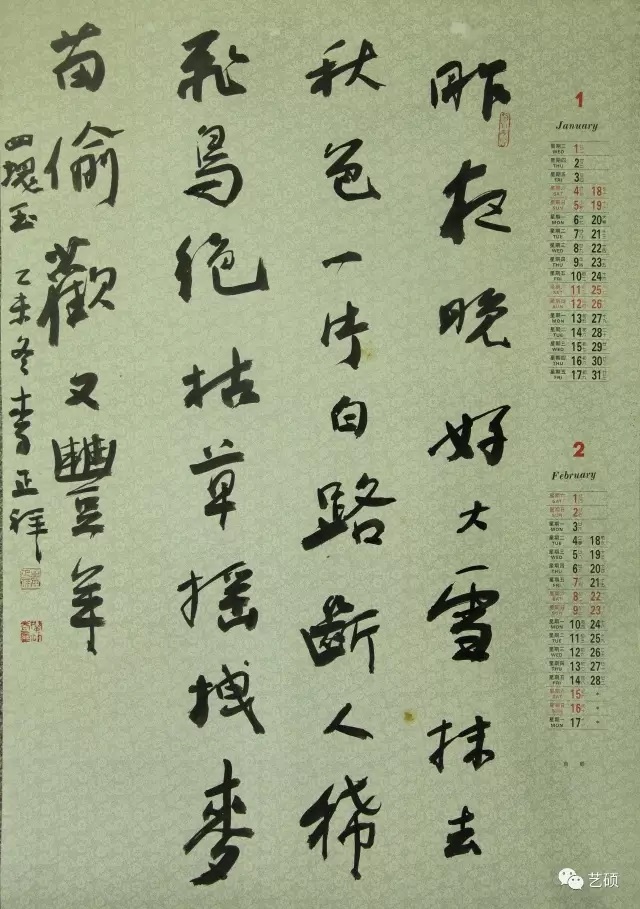 昨夜晚好大雪抹去
秋色一片白路斷人稀
飛鳥絶枯草摇拽麥
苗偷歡又豐年
四塊玉 乙未冬李正祥
1
January
星期三 WED 1
星期四 THU 2
星期五 FRI 3
星期六 SAT 4 18
星期日 SUN 5 19
星期一 MON 6 20
星期二 TUE 7 21
星期三 WED 8 22
星期四 THU 9 23
星期五 FRI 10 24
星期六 SAT 11 25
星期日 SUN 12 26
星期一 MON 13 27
星期二 TUE 14 28
星期三 WED 15 29
星期四 THU 16 30
星期五 FRI 17 31
2
February
星期六 SAT 1
星期日 SUN 2
星期一 MON 3
星期二 TUE 4 18
星期三 WED 5 19
星期四 THU 6 20
星期五 FRI 7 21
星期六 SAT 8 22
星期日 SUN 9 23
星期一 MON 10 24
星期二 TUE 11 25
星期三 WED 12 26
星期四 THU 13 27
星期五 FRI 14 28
星期六 SAT 15
星期日 SUN 16
星期一 MON 17
艺硕